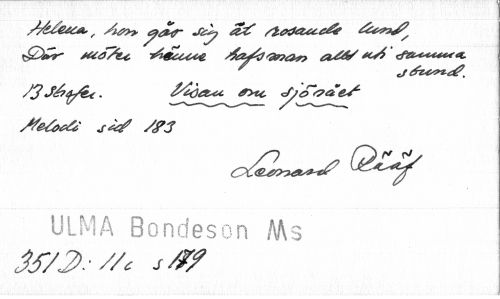 Helena, hon går sig åt rosande lund,
Där möter henne hafsman allt uti samma
stund.
13 strofer. Visan om sjörået
Melodi sid 183
Leonard Rääf
ULMA Bondeson Ms
351 D: 11c s 179